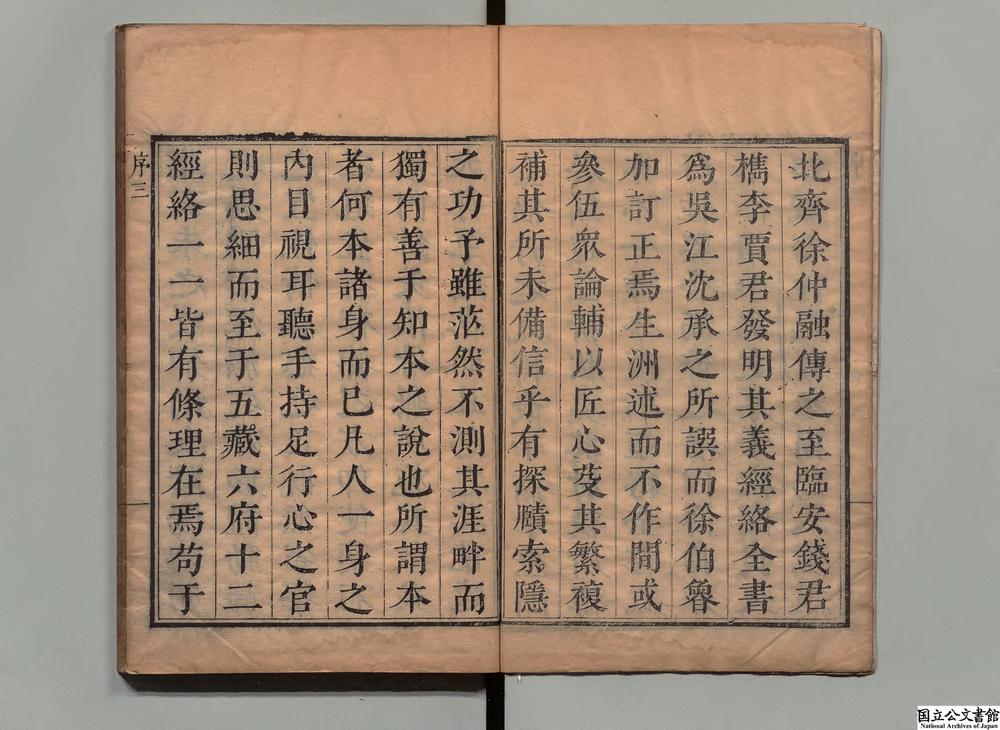 北齊徐仲融傳之至臨安錢君
檇李賈君發明其義經絡全書
爲吳江沈承之所譔而徐伯魯
加訂正焉生洲述而不作間或
參伍眾論輔以匠心芟其繁複
補其所未備信乎有探賾索隱
之功予雖茫然不測其涯畔而
獨有善于知本之說也所謂本
者何本諸身而已凡人一身之
內目視耳聽手持足行心之官
則思細而至于五藏六府十二
經絡一一皆有條理在焉苟于
序 三
国立公文書館
National Archives of Japan